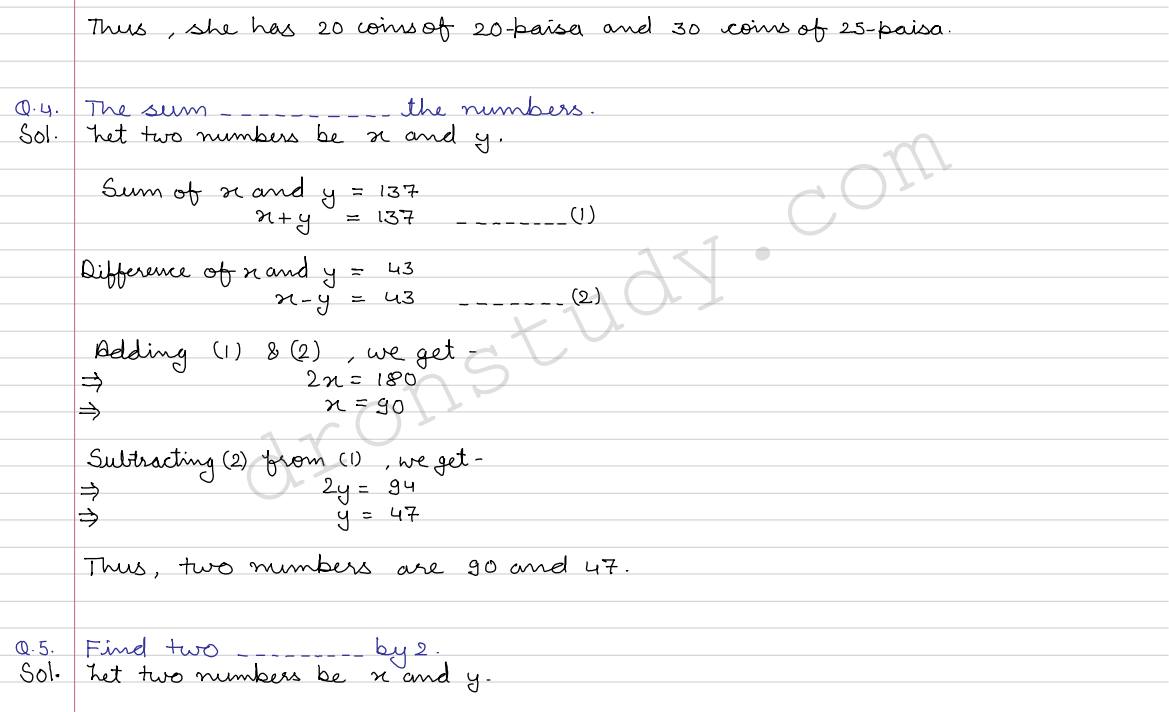 Thus, she has 20 coins of 20-paisa and 30 coins of 25-paisa.
Q.4. The sum ---------- the numbers.
Sol. Let two numbers be x and y.
Sum of x and y = 137
x+y = 137 --------(1)
Difference of x and y = 43
x-y = 43 -------(2)
Adding (1) & (2), we get -
⇒ 2x = 180
⇒ x = 90
Subtracting (2) from (1), we get -
⇒ 2y = 94
⇒ y = 47
Thus, two numbers are 90 and 47.
Q.5. Find two --------- by 2.
Sol. Let two numbers be x and y.
dronstudy.com